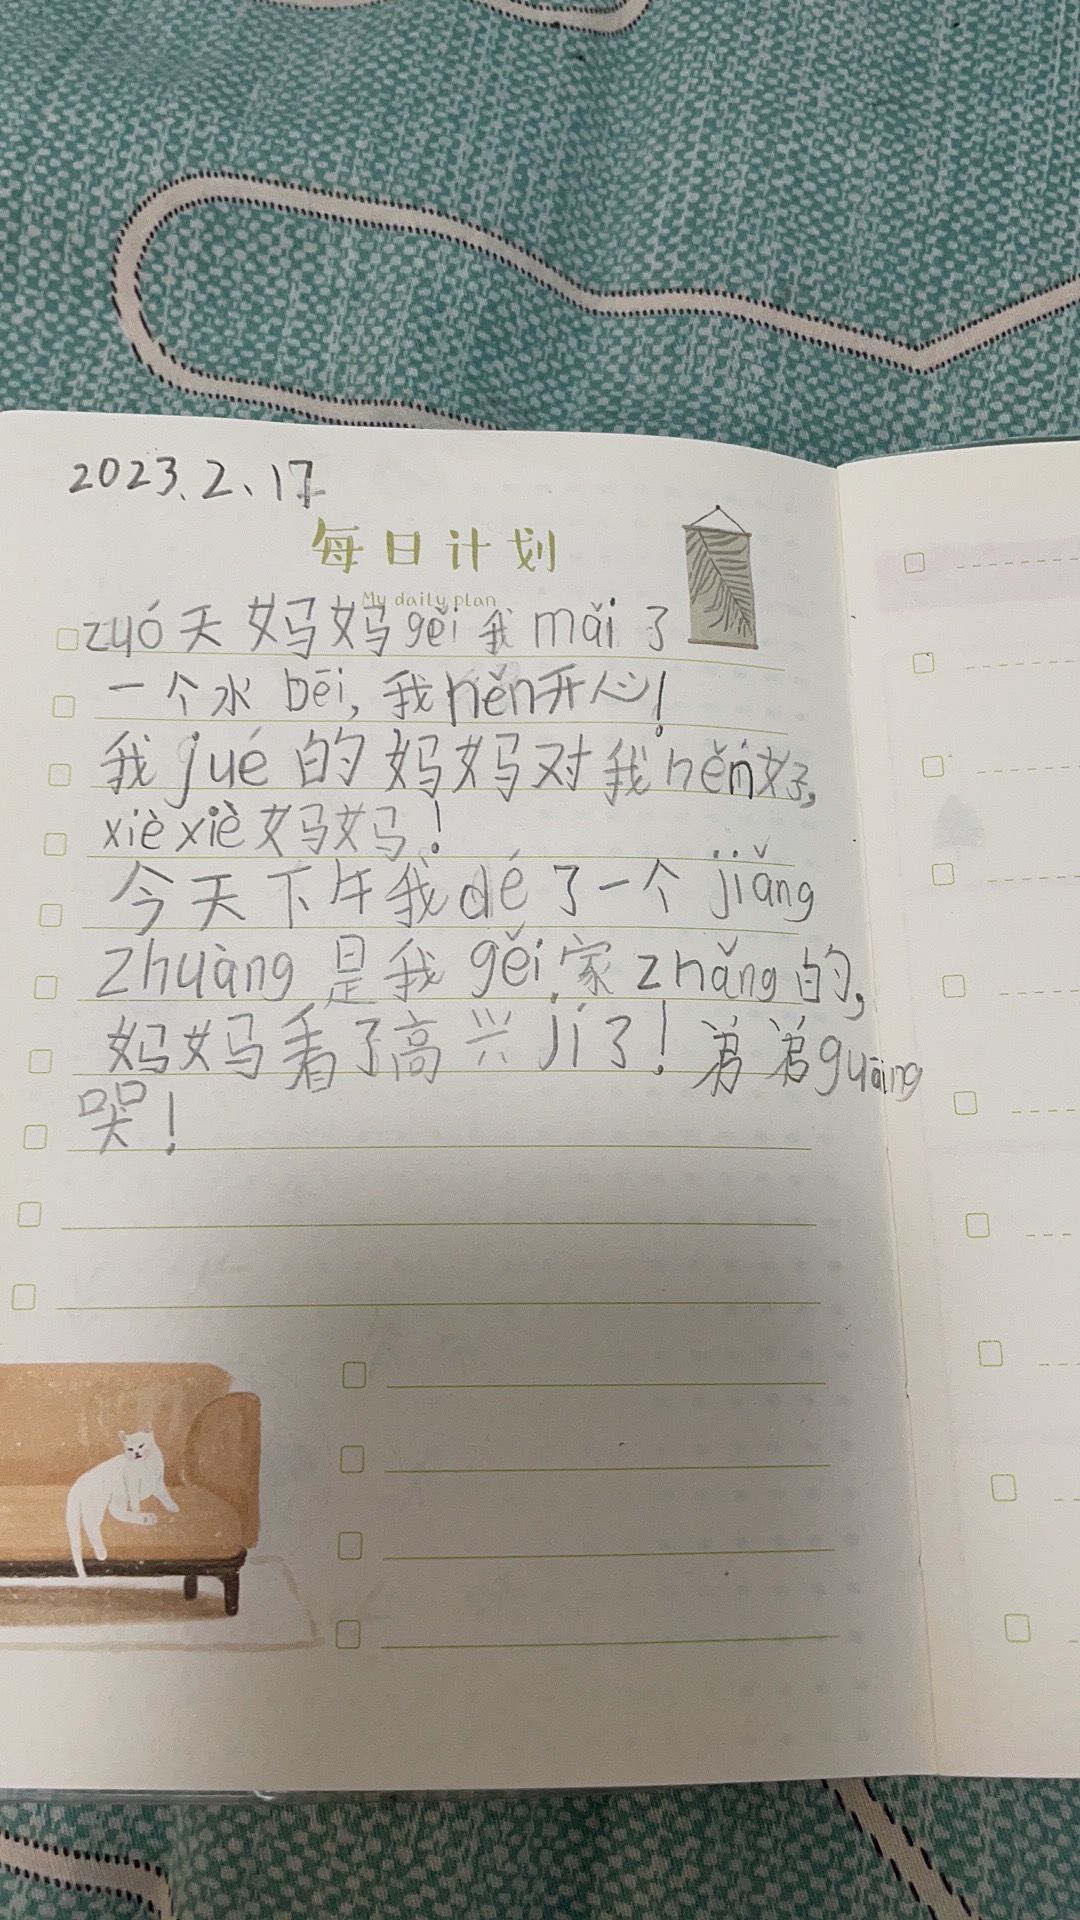 2023.2、17
每日计划
My daily plan
zuó天妈妈gěi我mǎi了
一个水bēi,我hěn开心!
我jué的妈妈对我hěn好,
xièxiè妈妈!
今天下午我dé了一个jiǎng
zhuàng是我gěi家zhǎng的,
妈妈看了高兴jí了!弟弟guāng
哭!